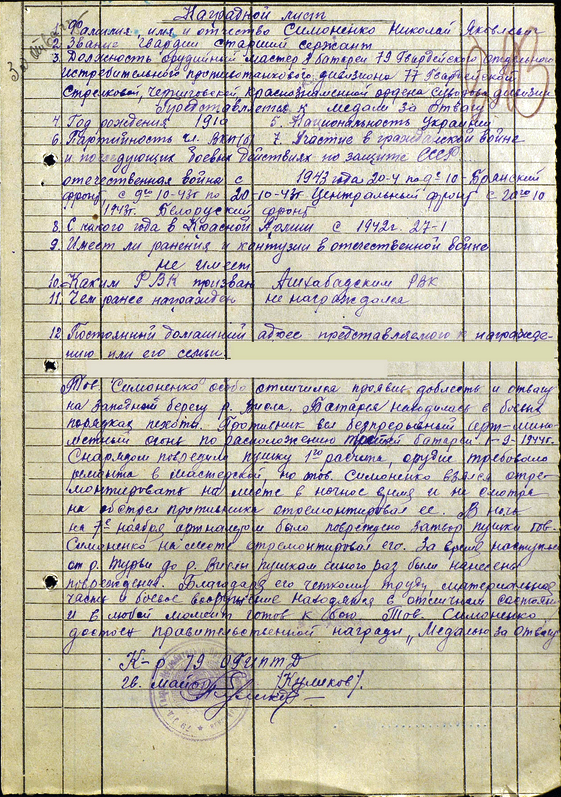 Наградной лист
1. Фамилия имя и отчество Симоненко Николай Яковлевич
2. Звание гвардии старший сержант
3. Должность орудийный мастер батареи 79 Гвардейского отдельного
истребительного противотанкового дивизиона 77 Гвардейской
Стрелковой, Черниговской Краснознаменной ордена Суворова дивизии
Представляется к медали за Отвагу
4. Год рождения 1910 5. Национальность Украинец
6. Партийность чл. ВКП(б) 7. Участие в гражданской войне
и последующих боевых действиях по защите СССР
отечественная война с 1943 года 20-4 по 10 Брянский
фронт, с 10-43г по 20-10-43г Центральный фронт с 20 10
1943г. Белорусский фронт
8. С какого года в Красной Армии с 1942г. 27-1
9. Имеет ли ранения и контузии в отечественной войне
не имеет
10. Каким РВК призван Ашхабадским РВК
11. Чем ранее награжден не награждался
12. Постоянный домашний адрес представляемого к награжде-
нию или его семьи
Тов. Симоненко особо отличился проявив доблесть и отвагу
на западном берегу р. Висла. Батарея находилась в боевых
порядках пехоты. Противник вел безпрерывный арт-мино-
метный огонь по расположению батареи 1-9-1944г.
Снарядом повредило пушку 1го расчета, орудие требовало
ремонта в мастерской, но тов. Симоненко взялся отре-
монтировать на месте в ночное время и не смотря
на обстрел противника отремонтировал ее. В ночь
на 7е ноября артснарядом было повреждено затвор пушки тов.
Симоненко на месте отремонтировал его. За время наступления
от р. Турья до р. Вислы пушкам много раз были нанесены
повреждения. Благодаря его четкому труду, материальная
часть и боевое вооружение находятся в отличном состоянии
и в любой момент готов к бою. Тов. Симоненко
достоин правительственной награды „Медалью за Отвагу
К-р 79 ОГИПТД
гв. майор /Куликов/.